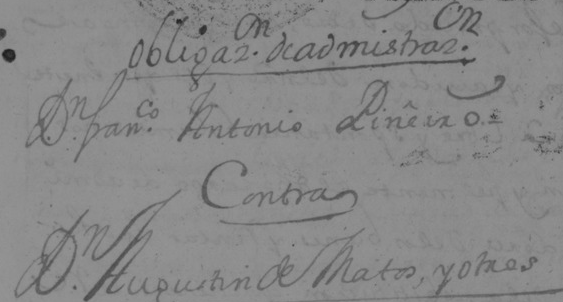 Obligaz.on de admistraz.on
D.n Fran.co Antonio Piñeiro=
Contra
D.n Augustin de Matos, y otros